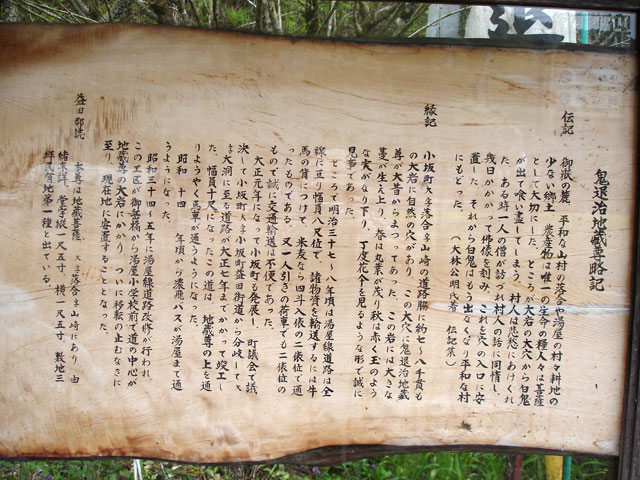 鬼退治地蔵尊略記
伝記
御嶽の麓 平和な山村の落合や湯屋の村々耕地の
少ない郷土 農産物は唯一の生命の糧人々は菩薩
として大切にした。ところが大岩の大穴から白鬼
が出て喰い盡してしまう。村人は悲愁にあけくれ
た。ある時一人の僧が訪づれ村人の話に同情し、
幾日かかかって佛像を刻み、これを穴の入口に安
置した。それから白鬼はもう出なくなり平和な村
にもどった。 (大林公明氏著 伝記集)
縁記
小坂町大字落合字山崎の道路脇に約七〜八千貫も
の大岩に自然の穴があり、この大穴に鬼退治地蔵
尊が大昔からまつってあった。この岩には大きな
蔓が生え上り、春は丸葉が茂り秋は赤く玉のよう
な実がなり下り、丁度花傘を見るような形で誠に
見事であった。
ところで明治三十七〜八年頃は湯屋線道路は全
線に亘り幅員八尺位で、諸物資を輸送するには牛
馬の背につけて、米麦なら四斗入俵の二俵位で通
ったものである、又一人引きの荷車でも二俵位の
もので誠に交通輸送は不便であった。
大正元年になって小坂町も発展し、町議会で議
決して小坂町大字小坂町益田街道から分岐して大
字大洞に至る道路が大正七年までかかって竣工し
た。幅員十尺になったこの道は、地蔵尊の上を通
りようやく馬車が通うようになった。
昭和 十四 年頃から濃飛バスが湯屋まで通
うようになった。
昭和三十四〜五年に湯屋線道路改修が行われ、
この工区が御岳橋から湯屋小学校前で道の中心が
地蔵尊の大岩にかかり、ついに移転の止むなきに
至り、現在地に安置することとなった。
益田郡誌
本尊は地蔵菩薩 大字落合字山崎にあり 由
緒未詳、堂宇縦一尺五寸、横一尺五寸、敷地三
坪民有地第一種と出ている。